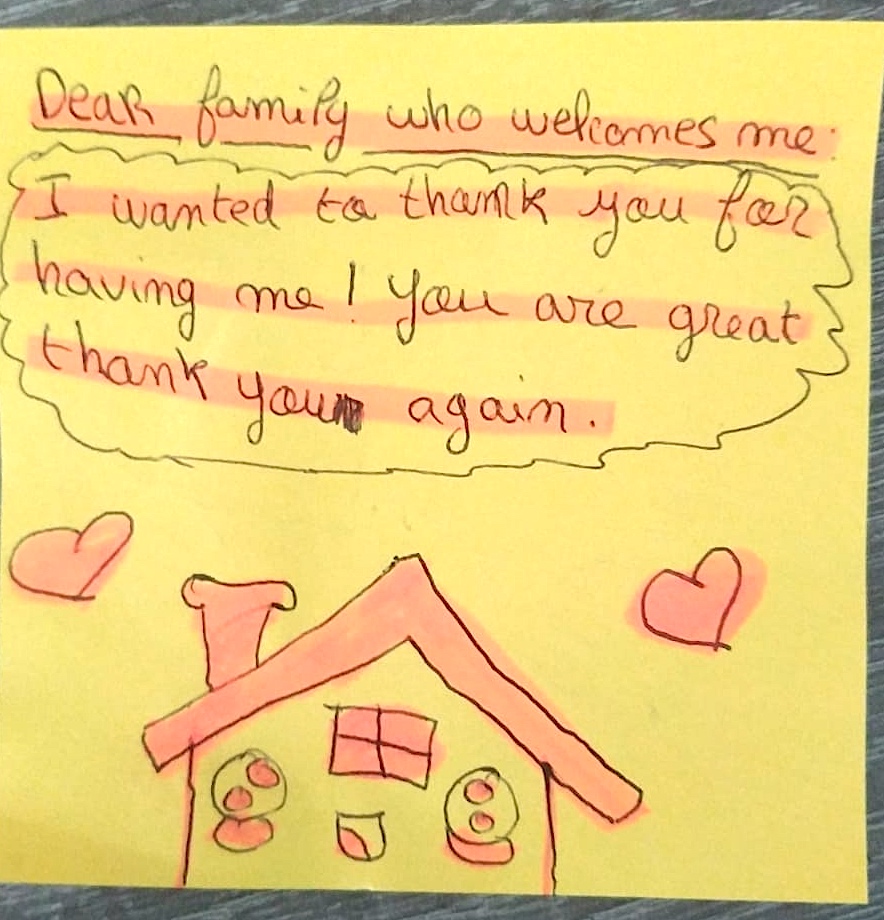 Dear family who welcomes me:
I wanted to thank you for
having me! You are great
thank you again.